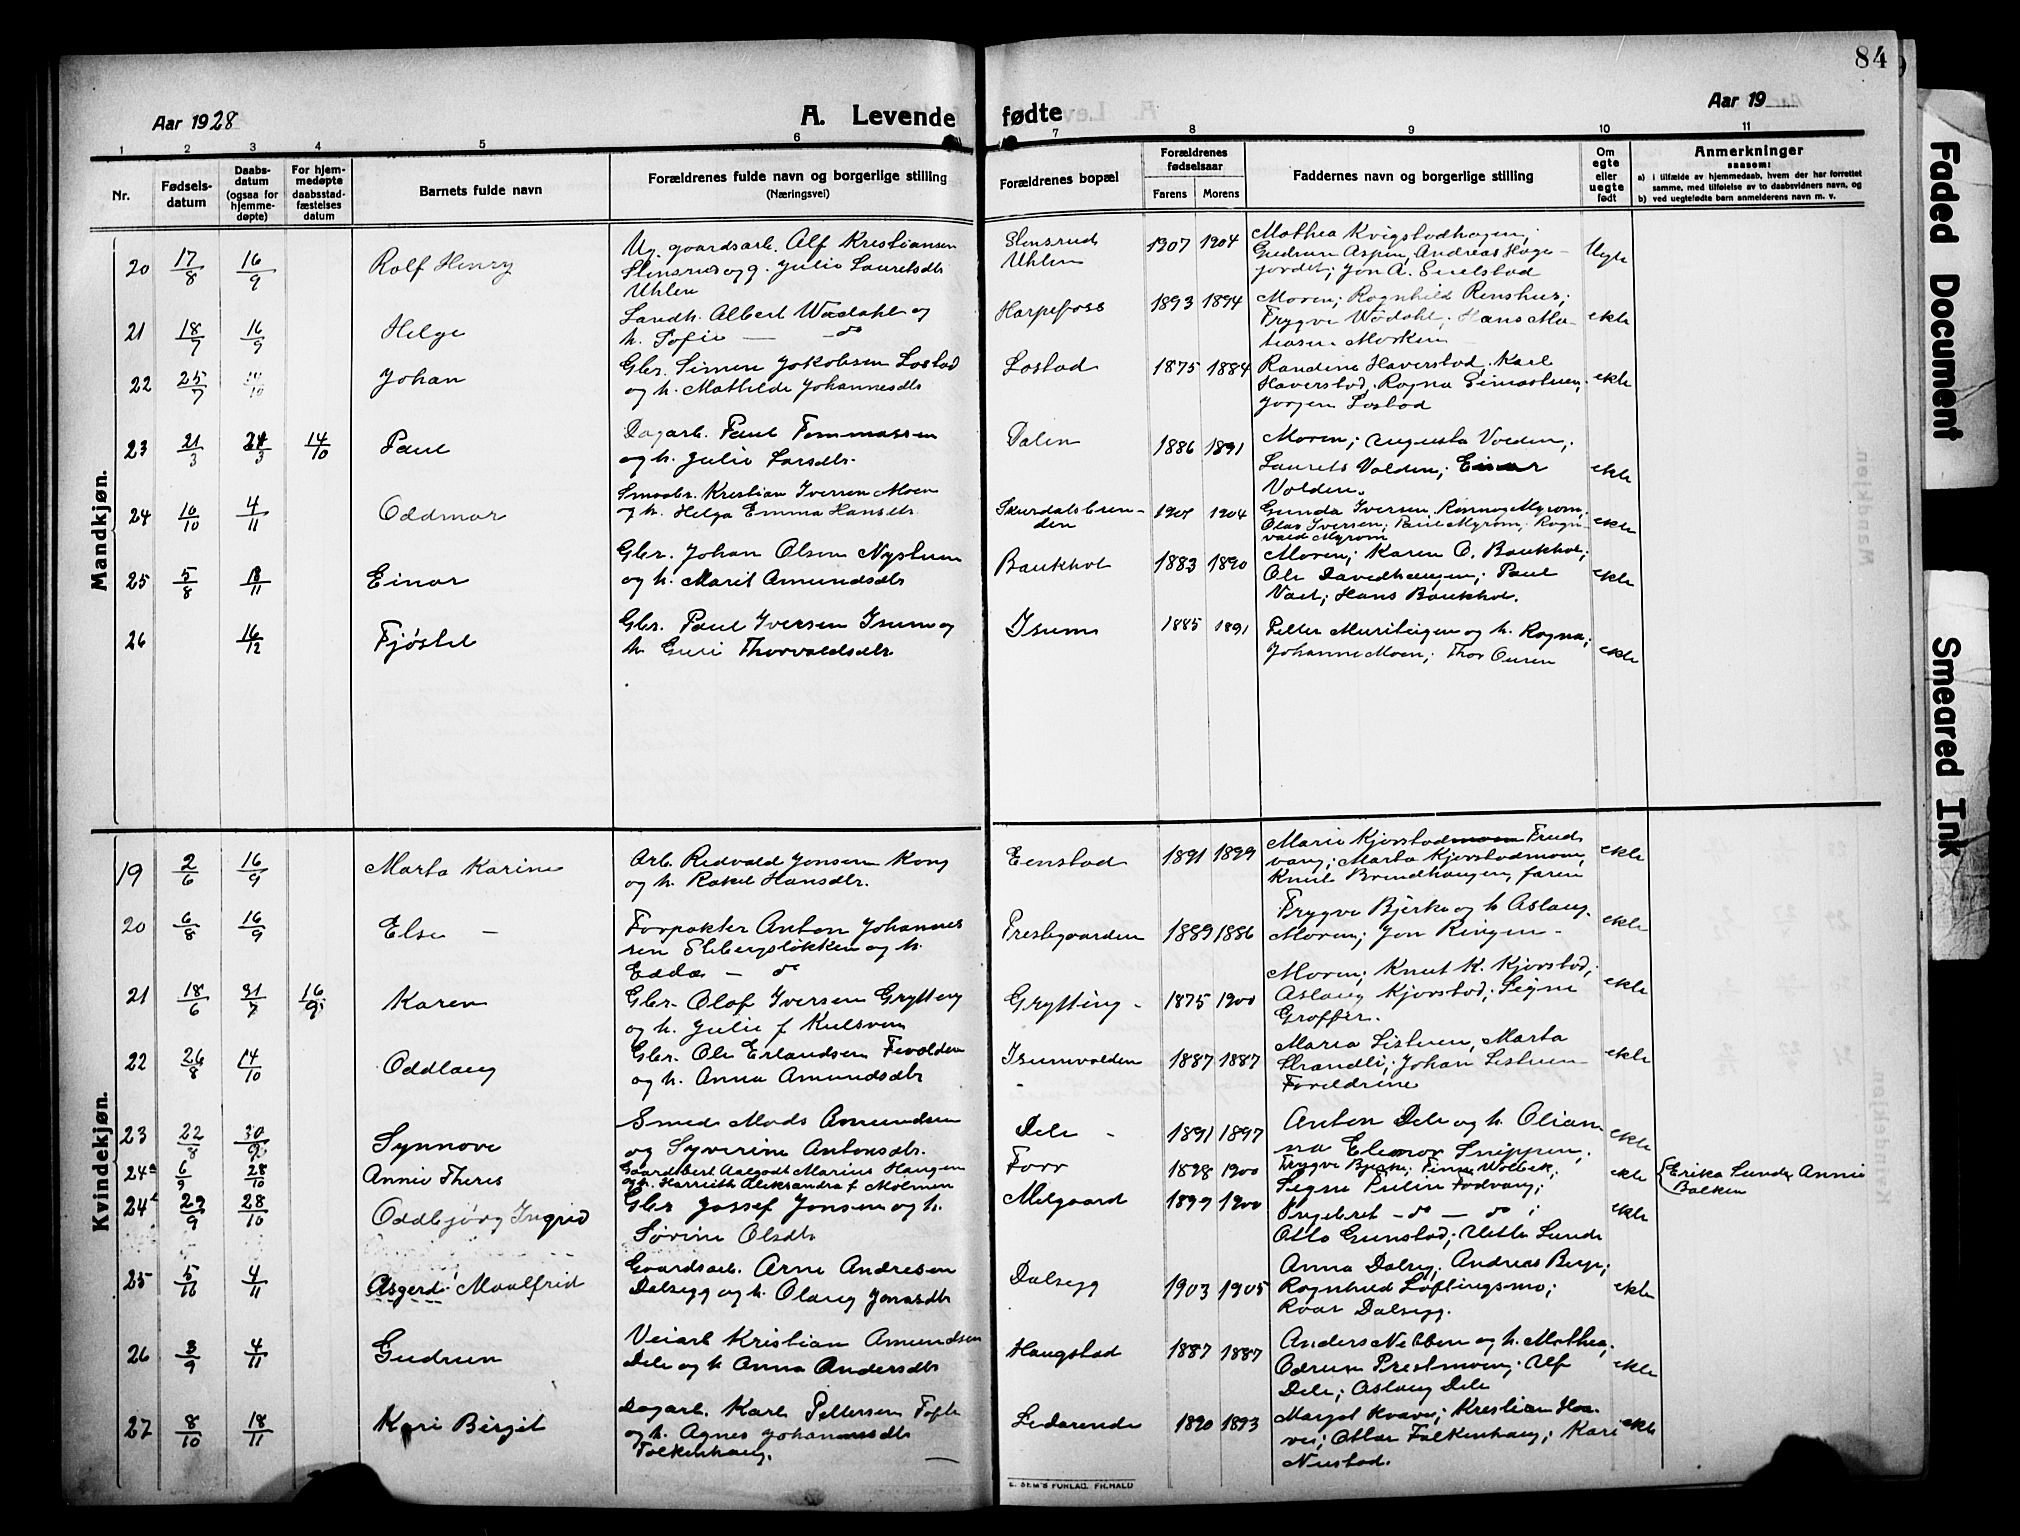 84
Aar 1928
A. Levende fødte
Aar 19
1 2 3 4 5 6 7 8 9 10 11
Nr.
Fødsels-
datum
Daabs-
datum
(ogsaa for
hjemme-
døpte)
For hjem-
medøpte
daabsstad-
fæstelses
datum
Barnets fulde navn
Forældrenes fulde navn og borgerlige stilling
(Næringsvei)
Forældrenes bopæl
Forældrenes
fødselsaar
Farens Morens
Faddernes navn og borgerlige stilling
Om
egte
eller
uegte
født
Anmerkninger
saasom:
a) i tilfælde av hjemmedaab, hvem der har forrettet
samme, med tilføielse av to daabsvidners navn, og
b) ved uegtefødte barn anmelderens navn m. v.
Mandkjøn.
20 17/8 16/9 Rolf Henry
Ug. gaardsarb. Alf Kristiansen
Slensrud og g. Julie Lauritsdtr
Uhlen
Slensrud
Uhlen
1907 1904
Mathea Kvigstadhagen;
Gudrun Aspen, Andreas Hage-
jordet; Jon A. Sulstad
Uegte
21 18/7 16/9 Helge
Landh. Albert Wadahl og
h. Sofie — do
Harpefoss 1893 1894
Moren; Rognhild Renshus;
Trygve Wadahl; Hans Ma-
tiasen Morken
ekte
22 25/7 14/10 Johan
Gbr. Simen Jakobsen Lostad
og h. Mathilde Johannesdtr
Lostad 1875 1884
Randine Haverstad, Karl
Haverstad, Ragna Simastuen,
Jørgen Lostad
ekte
23 21/3 24/3 14/10 Paul
Dagarb. Paul Tommassen
og h. Julie Larsdtr.
Dalen 1886 1891
Moren; Augusta Volden;
Laurits Volden; Einar
Volden.
ekte
24 16/10 4/11 Oddmar
Smaabr. Kristian Iversen Moen
og h. Helga Emma Hansdtr
1904
Gunda Iversen, Rønnog Myrom;
Olav Iversen; Paul Myrom, Ragn-
vald Myrom
ekte
25 5/8 18/11 Einar
Gbr. Johan Olsen Nystuen
og h. Marit Amundsdtr
Baukhol 1883 1890
Moren; Karen O. Baukhol;
Ole Davidhaugen; Paul
Hans Baukhol.
ekte
26 16/12 Fjøstel
Gbr. Paul Iversen Isum og
h. Guri Thorvaldsdtr.
Isum 1885 1891
Petter Muriteigen og h. Ragna;
Johanne Moen; Thor Ouren
ekte
Kvindekjøn.
19 2/6 16/9 Marta Karine
Arb. Redvald Jonsen Kong
og h. Rakel Hansdtr.
Eenstad 1891 1899
Marie Kjorstadmoen Frud-
vang; Marta Kjorstadmoen,
Knut Brendhaugen, faren
ekte
20 6/8 16/9 Else —
Forpakter Anton Johannes
sen Skibergsløkken og h.
Edda — do
Prestegaarden 1889 1886
Trygve Bjerke og h. Aslaug.
Moren; Jon Ringen -
ekte
21 18/6 31/7 16/9 Karen
Gbr. Olaf Iversen Grytting
og h. Julie f Kulsveen
Grytting - 1875 1900
Moren; Knut K. Kjorstad;
Aslaug Kjorstad; Signe
Groffer.
ekte
22 26/8 14/10 Oddlaug
Gbr. Ole Erlandsen Fevolden
og h. Anna Amundsdtr
Isumvolden 1887 1887
Maria Listuen, Marta
Strandli; Johan Listuen
Foreldrene
ekte
23 22/8 30/9 Synnøve
Smed Mads Amundsen
og Syverine Antonsdtr.
Dele - 1891 1897
Anton Dele og h. Olian-
na Elenor Snippen;
ekte
24a 6/9 28/10 Annie Theres
Gaardsbest Aalgodt Marius Haugen
og h. Harrieth Aleksandra f Molmen
Forr 1898 1900
Trygve Bjerke; Finn Wolbek;
Signe Pulin Fodvang;
ekte
Erika Lunde, Annie
Bakken
24b 29/9 28/10 Oddbjørg Ingrid
Gbr Jossef Jonsen og h.
Sørine Olsdtr
Melgaard 1899 1900
Ingebret — do — do ;
Otto Gunstad; Vetle Lunde
ekte
25 5/10 4/11 Asgerd Maalfrid
Gaardsarb. Arne Andresen
Dalsegg og h. Olaug Jonasdtr
Dalsegg 1903 1905
Anna Dalseg; Andreas Berge;
Ragnhild Løftingsmo;
Roar Dalsegg.
ekte
26 3/9 4/11 Gudrun
Veiarb Kristian Amundsen
Dele og h Anna Andersdtr
Haugstad 1887 1887
Anders Nebben og h. Mathea,
Odrun Prestmoen; Ulf
Dele; Aslaug Dele
ekte
27 8/10 18/11 Kari Birgit
Dagarb. Karl Pettersen Tofte
og h. Agnes Johannesdtr
Falkenhaug.
Ledarende 1890 1893
Margot Kvave; Kristian Haa-
vei; Ottar Falkenhaug; Kari
Nustad.
ekte
E. SEM'S FORLAG. FR.HALD
Faded Document
Smeared Ink